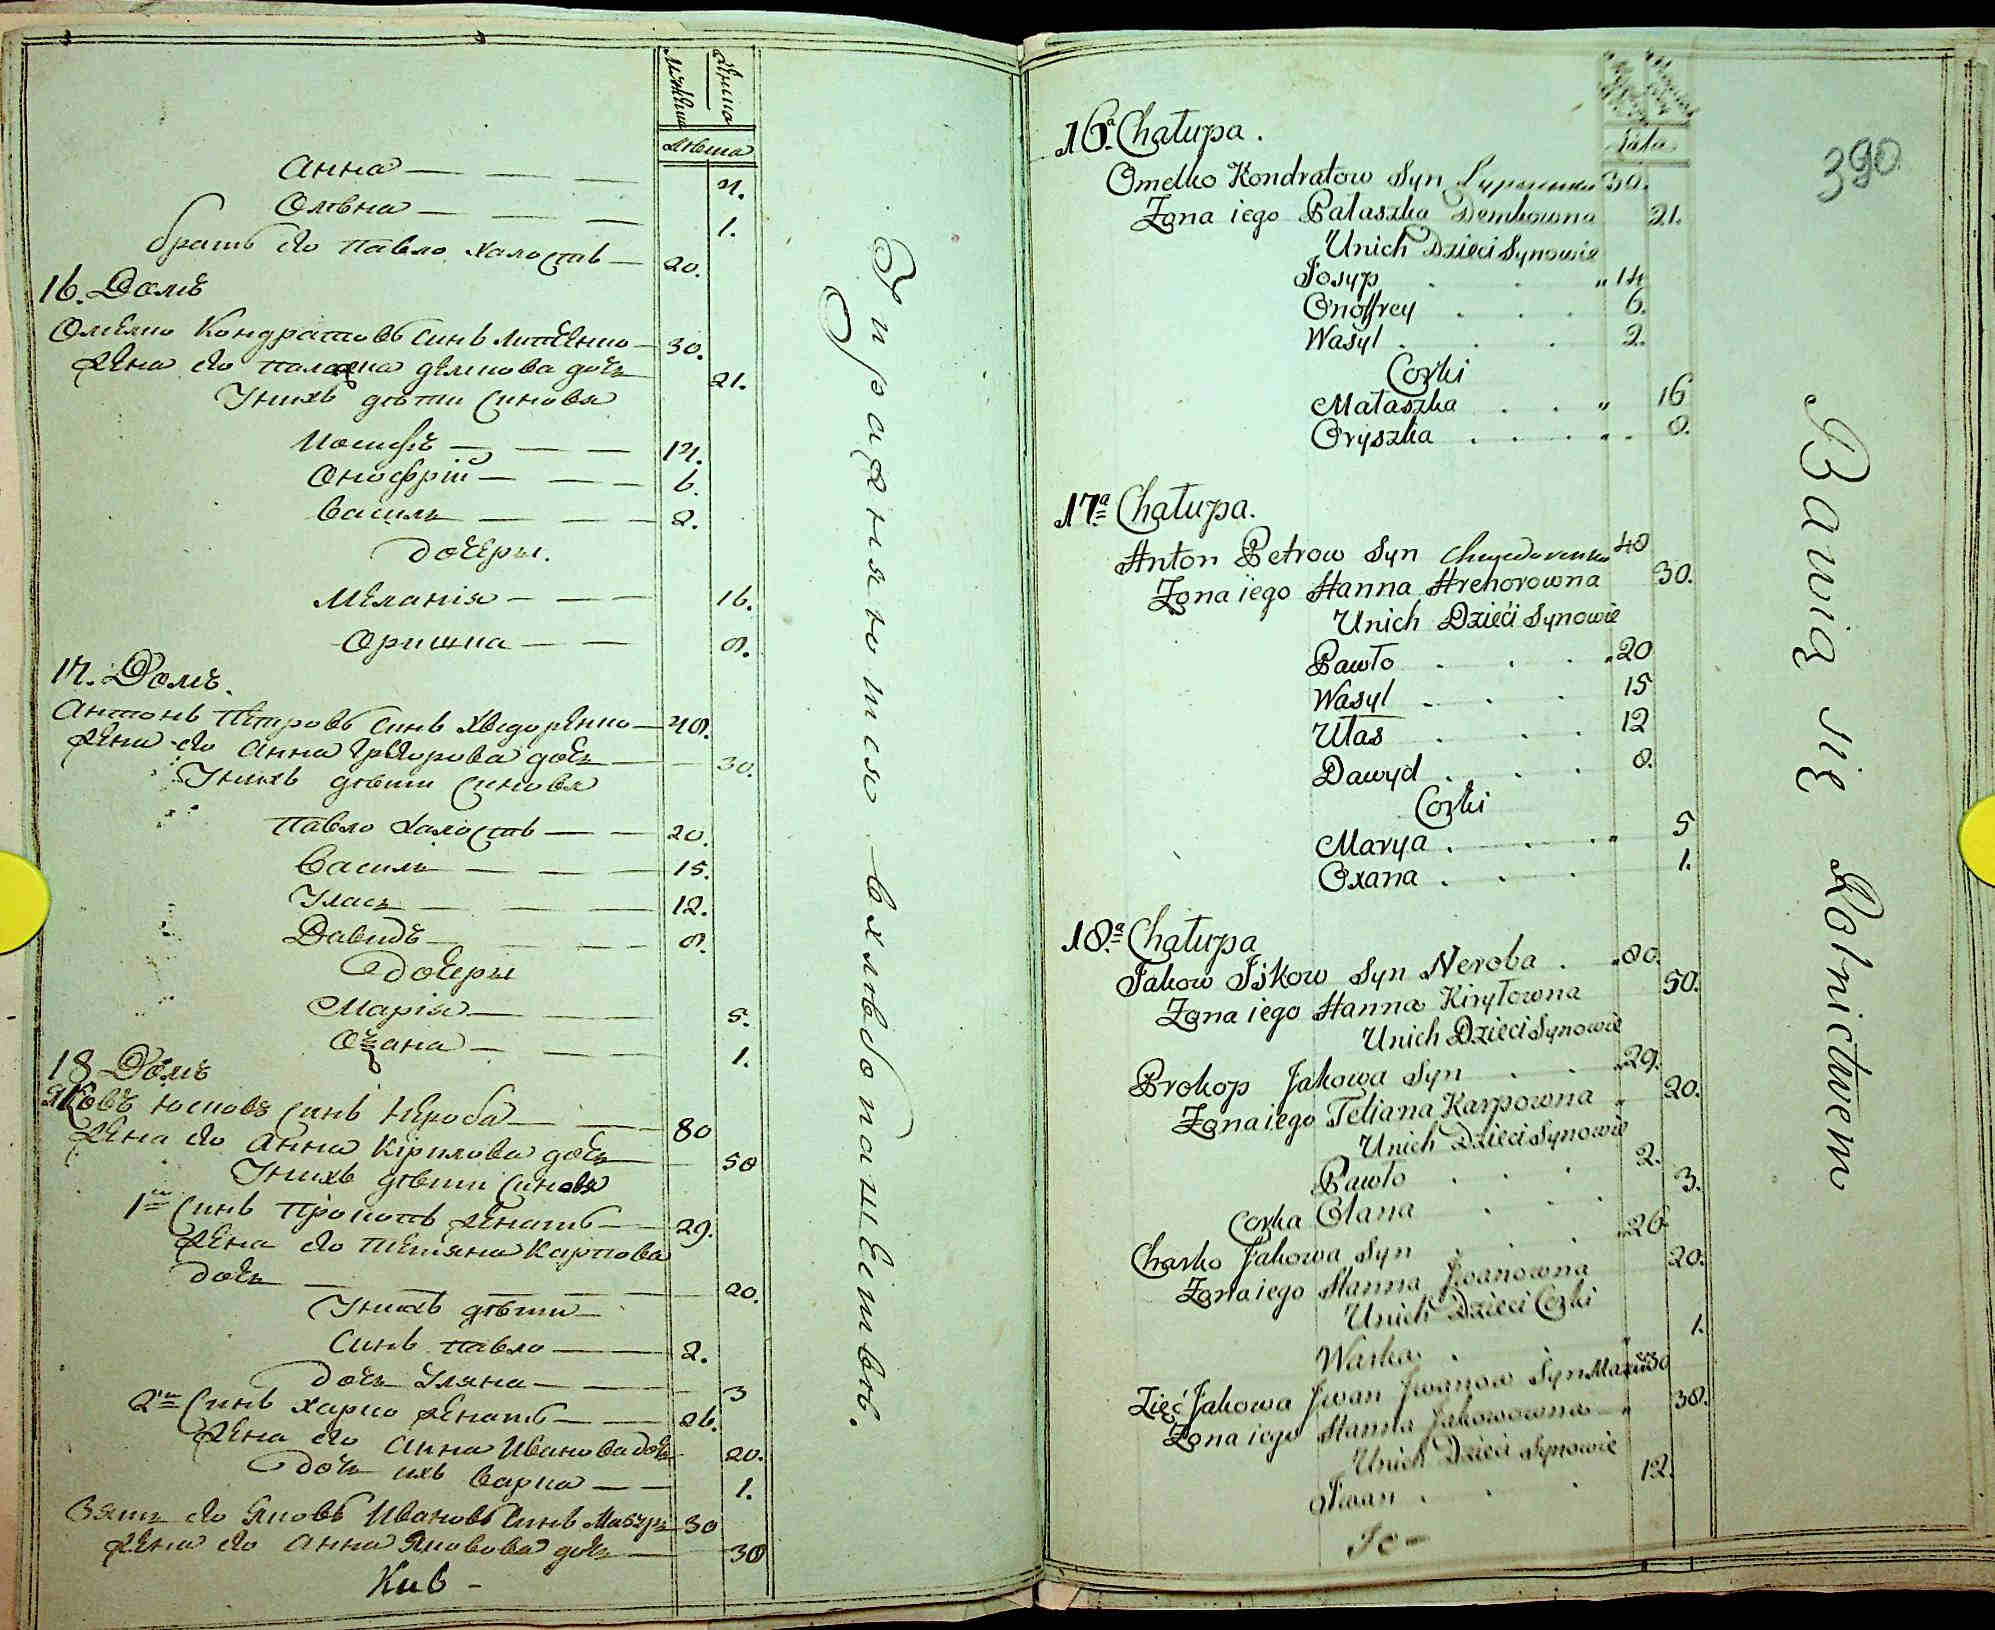 Мужеска
Женска
Лѣта
Анна — — — 4.
Олѣна — — — 1.
братъ его Павло холостъ — 20.
16. Домъ
Омелко Кондратовъ синъ — 30.
жена его Палажка Демкова дочь 21.
Унихъ дѣти синовя
Иосифъ — — — 14.
Онофрій — — — 6.
Василь — — — 2.
дочеры.
Меланія — — — 16.
Оришка — — 8.
17. Домъ.
Антонъ Петровъ синъ Хведоренко — 48.
жена его Анна Грегорова дочь — — 30.
Унихъ дѣти синовя
Павло холостъ — — 20.
Василь — — — 15.
Уласъ — — — 12.
Давидъ — — — 8.
дочеры
Марія — — — 5.
Оѯана — — — 1.
18 Домъ
Яковъ Юсковъ синъ Нероба — — 80
жена его Анна Кирилова дочь — — 50
Унихъ дѣти синовя
1й синъ Прокопъ женатъ — 29.
жена его Тетяна Карпова
дочь — — — — 20.
Унихъ дѣти —
синъ Павло — — 2.
дочь Уляна — — — 3
2й синъ Харко женатъ — — 26.
жена его Анна Иванова дочь 20.
дочь ихъ Варка — — 1.
Зять его Яковъ Ивановъ синъ Мазуръ 30
жена его Анна Яковова дочь — 38
Кив -
Упражняютися в хлѣбопашествѣ.
390
Lata
16.ª Chałupa.
Omelko Kondratow Syn 30.
Zona iego Pałaszka Demkowna 21.
Unich Dzieci Synowie
Josyp . . „ 14
Onoffrey . . . 6.
Wasyl . . . 2.
Corki
Małaszka . . „ 16
Oryszka . . . . 8.
17.ª Chałupa.
Anton Petrow Syn Chwedorenko 48
Zona iego Hanna Hrehorowna 30.
Unich Dzieci Synowie
Pawło . . . 20
Wasyl . . . 15
Ułas . . . 12
Dawyd . . . 8.
Corki
Marya . . . . 5
Oxana . . . 1.
18.ª Chałupa
Jakow Jskow Syn Neroba . 80.
Zona iego Hanna Kiryłowna 50.
Unich Dzieci Synowie
Prokop Jakowa Syn . . 29.
Zona iego Tetiana Karpowna „ 20.
Unich Dzieci Synowie
Pawło . . . 2.
Corka Olana . . 3.
Charko Jakowa Syn . . . 26
Zona iego Hanna Jwanowna 20.
Unich Dzieci Corki
Warka . . „ 1.
Zięć Jakowa Jwan Jwanow Syn Mazur 30
Zona iego Hanna Jakowowna — „ 38.
Unich Dzieci Synowie
Jwan . . . 12.
Jc -
Bawią się Rolnictwem